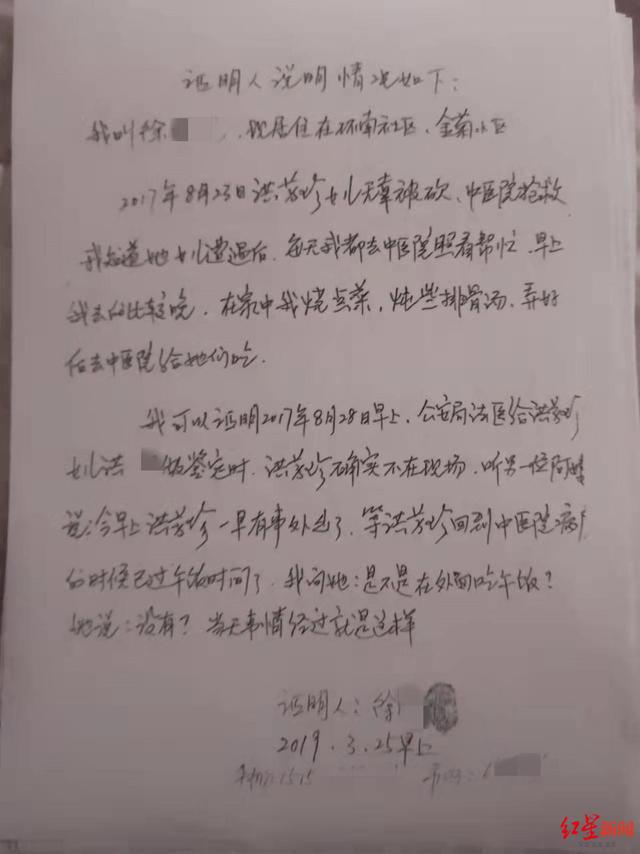 证明人说明情况如下:
我叫徐 ,现居住在环南社区,金菊小区
2017年8月23日洪芬珍女儿无辜被砍、中医院抢救
我知道她女儿遭遇后,每天我都去中医院照看帮忙,早上
我去的比较晚,在家中我烧点菜,炖些排骨汤,弄好
后去中医院给她们吃.
我可以证明2017年8月28日早上,公安局法医给洪芬珍
女儿洪 做鉴定时,洪芬珍确实不在现场,听另一位阿姨
说:今早上洪芬珍一早有事外出了,等洪芬珍回到中医院病房
的时候已过午饭时间了,我问她:是不是在外面吃午饭?
她说:没有?当天事情经过就是这样
证明人:徐
2019.3.25早上
1515
红星新闻